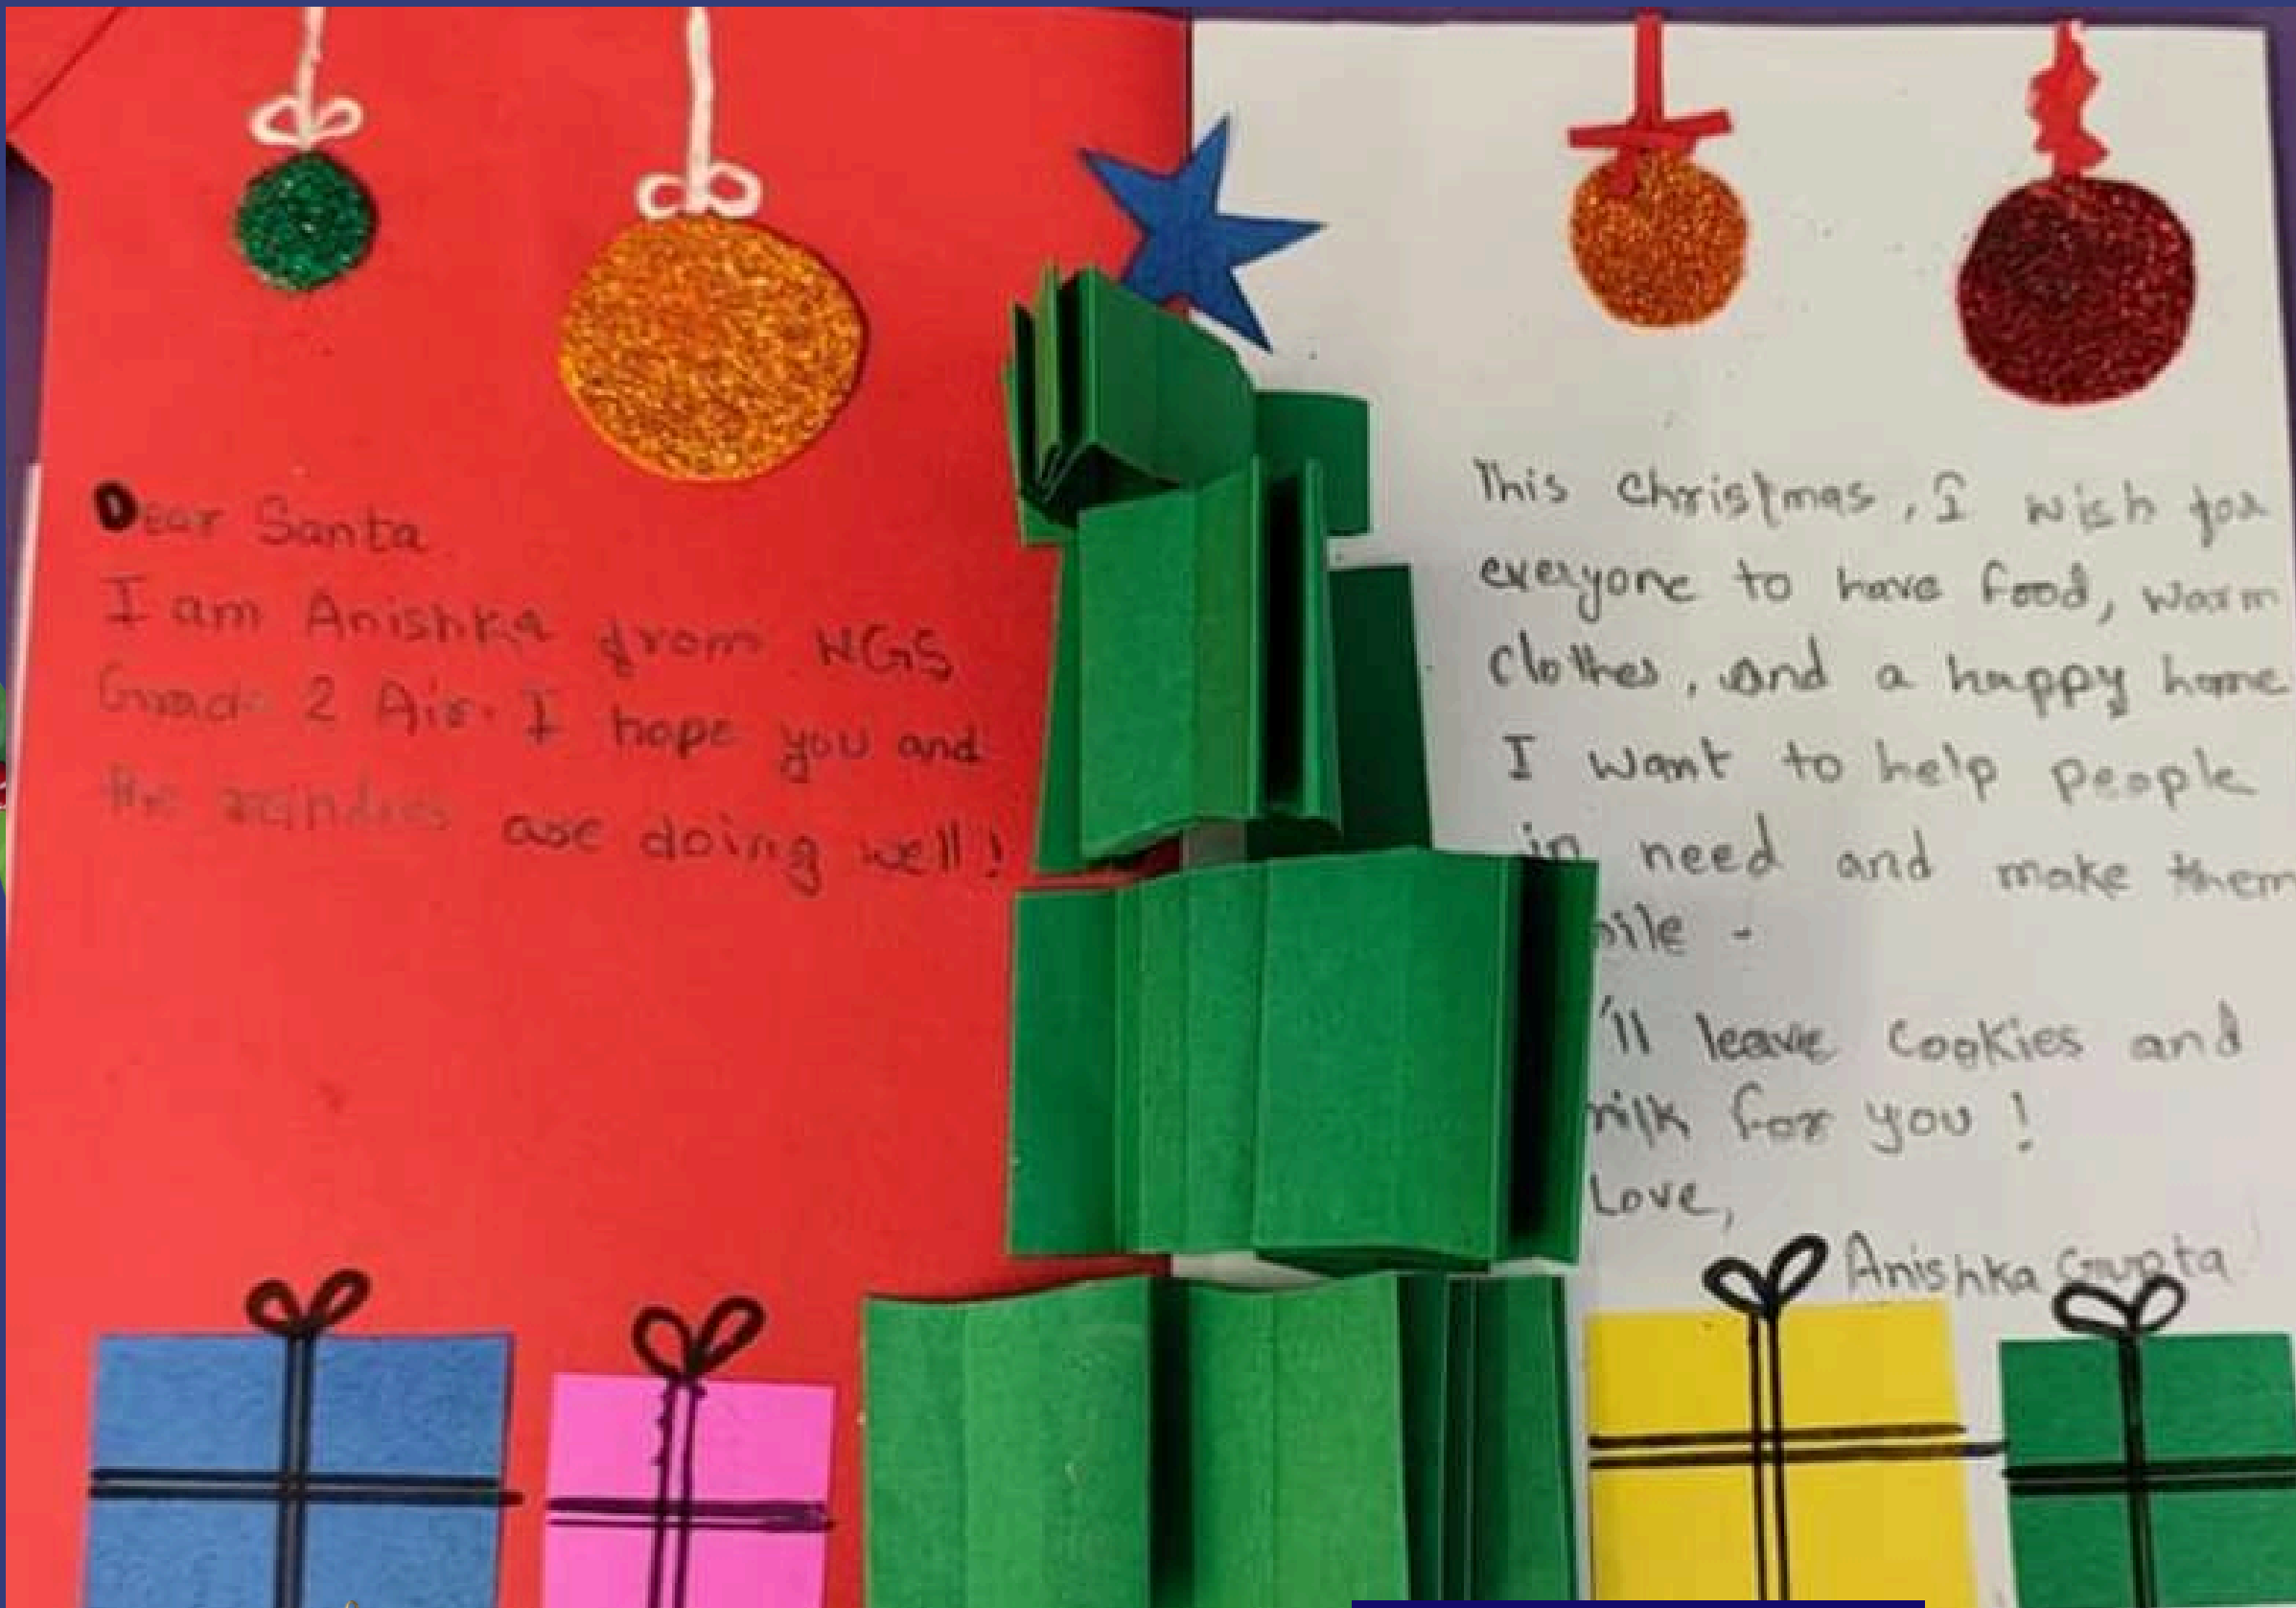 Dear Santa
I am Anishka from NGS
Grade 2 Air. I hope you and
the are doing well!
This christmas, I wish for
everyone to have food, warm
clothes, and a happy home
I want to help people
in need and make them
mile -
'll leave cookies and
milk for you!
Love,
Anishka Gupta